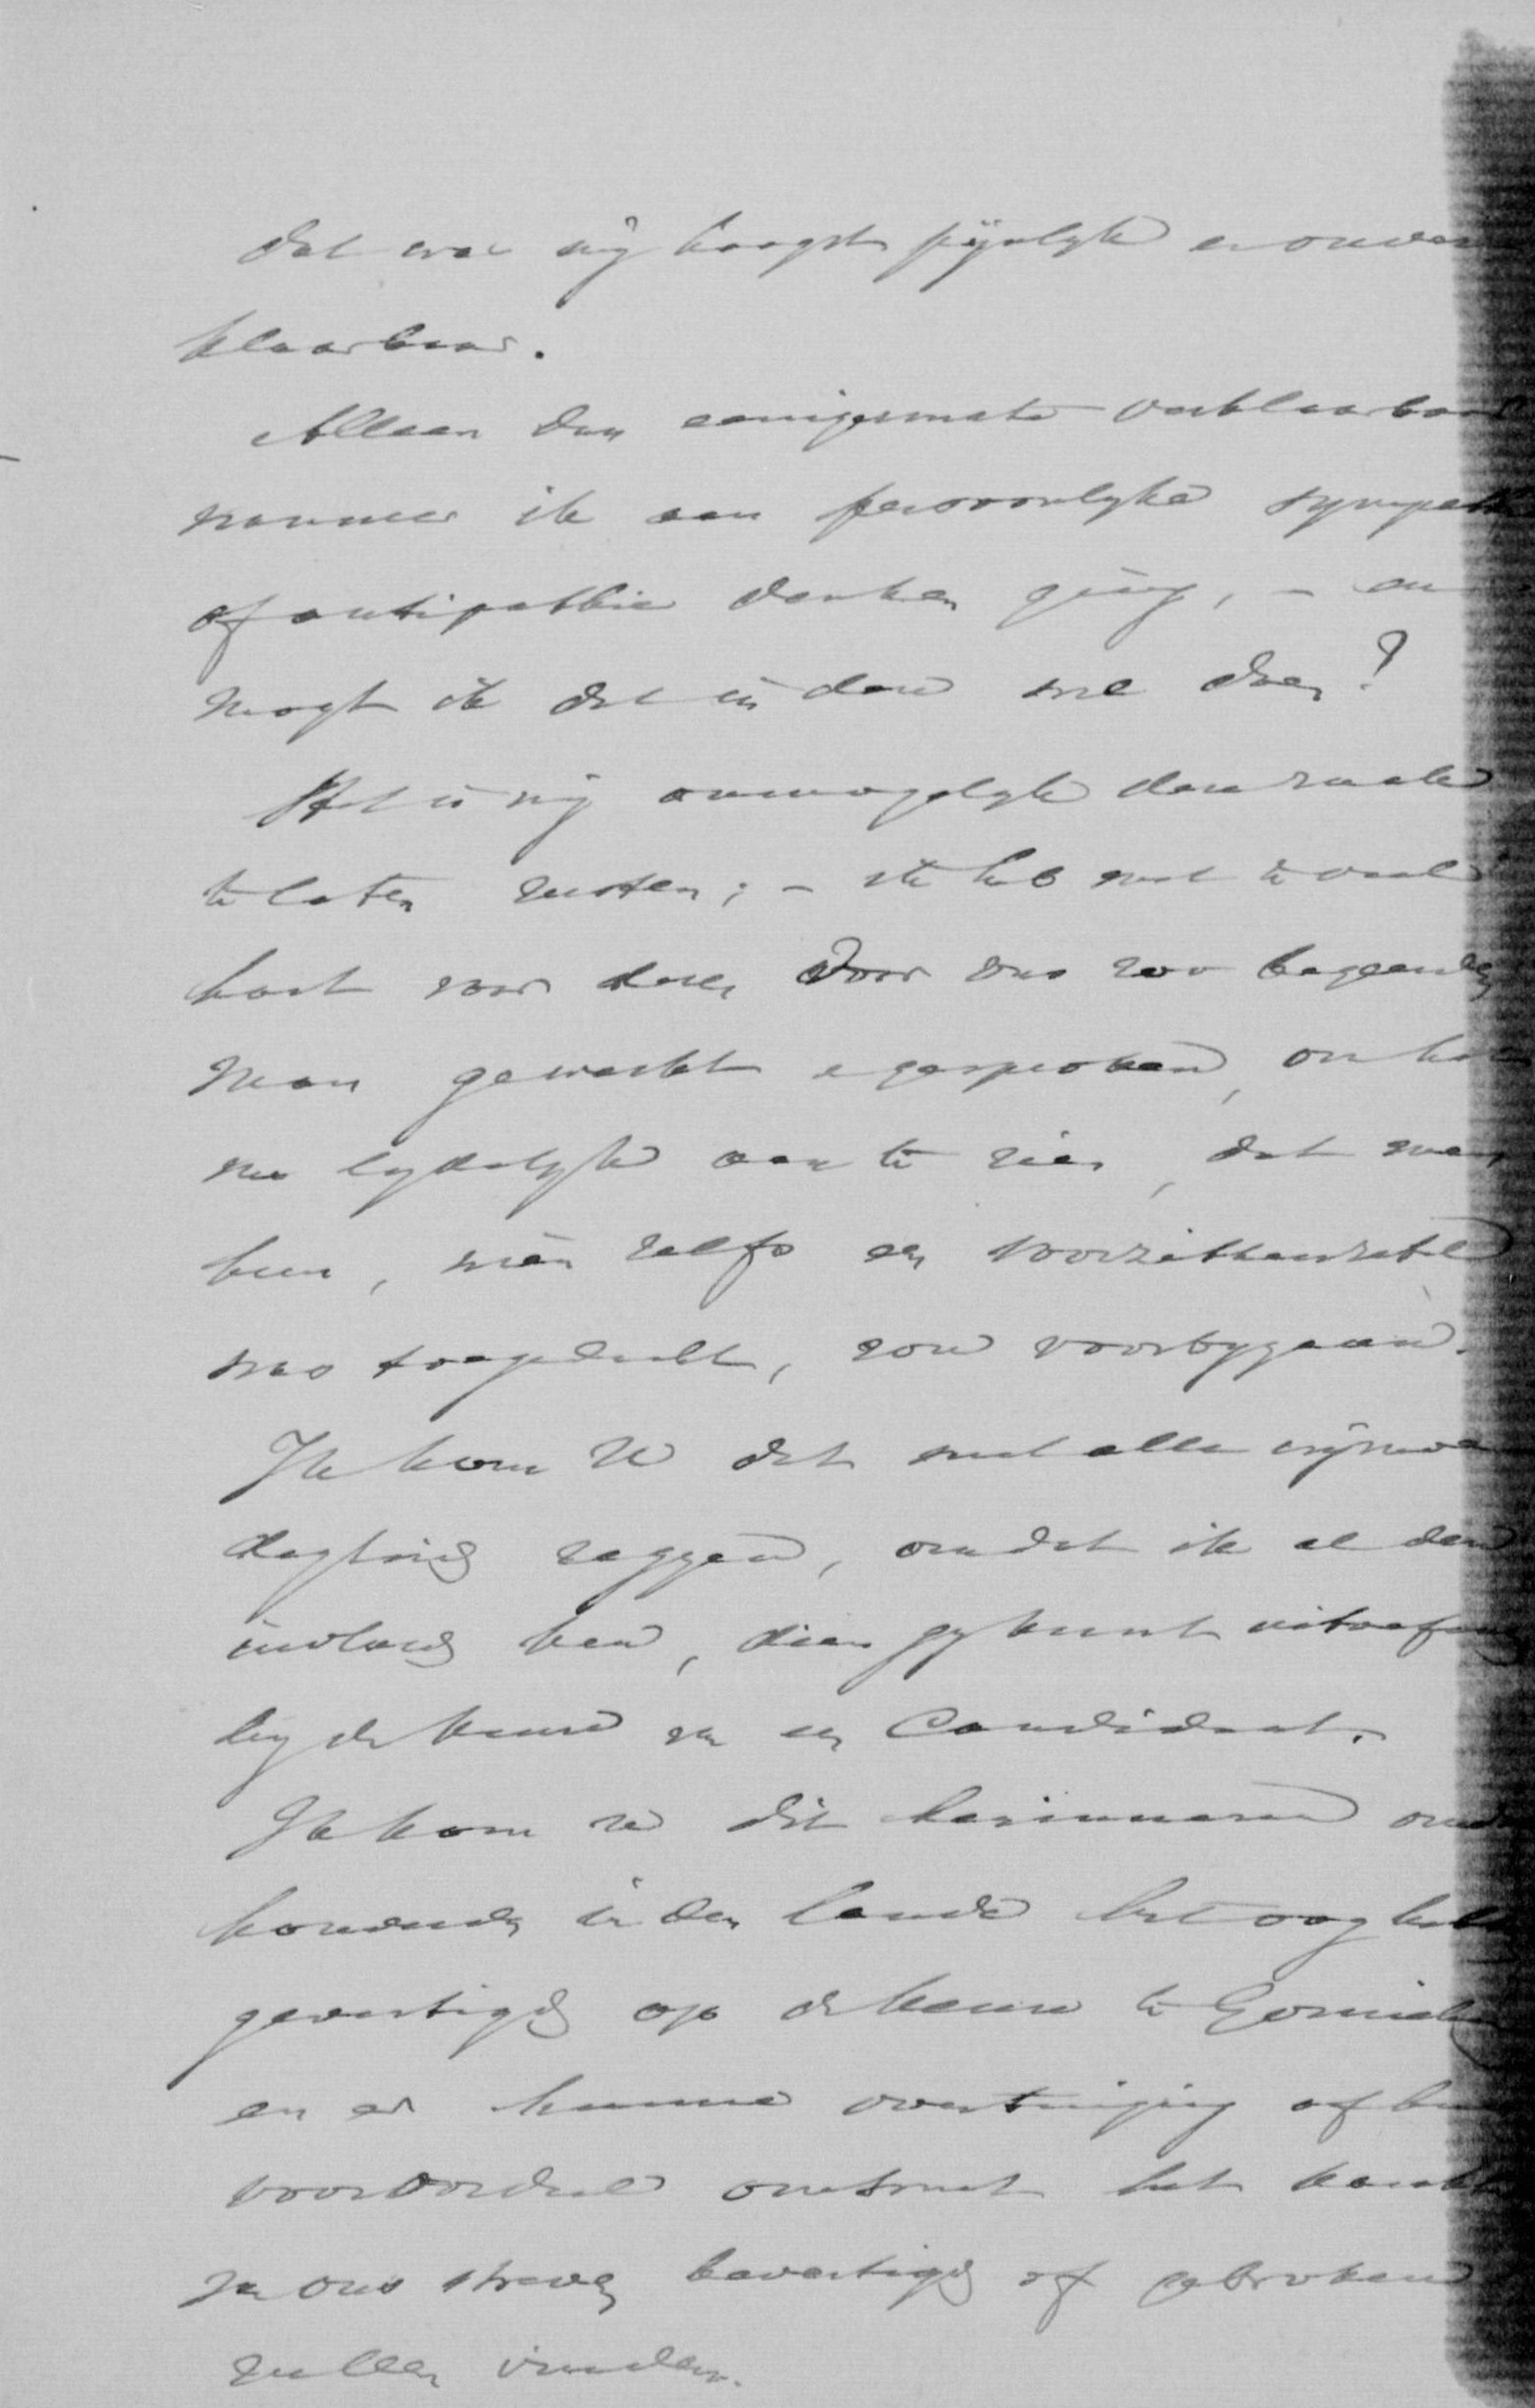 Dat was mij hoogst pijnlijk en onver
klaarbaar.
Alleen dan eenigermate verklaarbaar
wanneer ik aan persoonlyke sympath
of antipathie denken ging, – en
mogt ik dat in deze wel doen?
Het is mij onmogelyk deze zaak
te laten rusten; – ik heb met te veel
hart voor dezen door ons zoo begeerden
man gewerkt en gesproken, om het
nu lydelyk aan te zien, dat men
hem, wien zelfs een voorzitterszetel
was toegedacht, zou voorbygaan.
Ik kom U dat met alle vrijmoe
digheid zeggen, omdat ik al den
invloed ken, dien gy kunt uitoefenen
by de keuze van een Candidaat.
Ik kom U dit herinneren omdat
honderden in den lande het oog hebben
gevestigd op de keuze te Gorinchem
en er hunne overtuiging of hun
vooroordeel omtrent het karakter
van ons streven bevestigd of gebroken
zullen vinden.